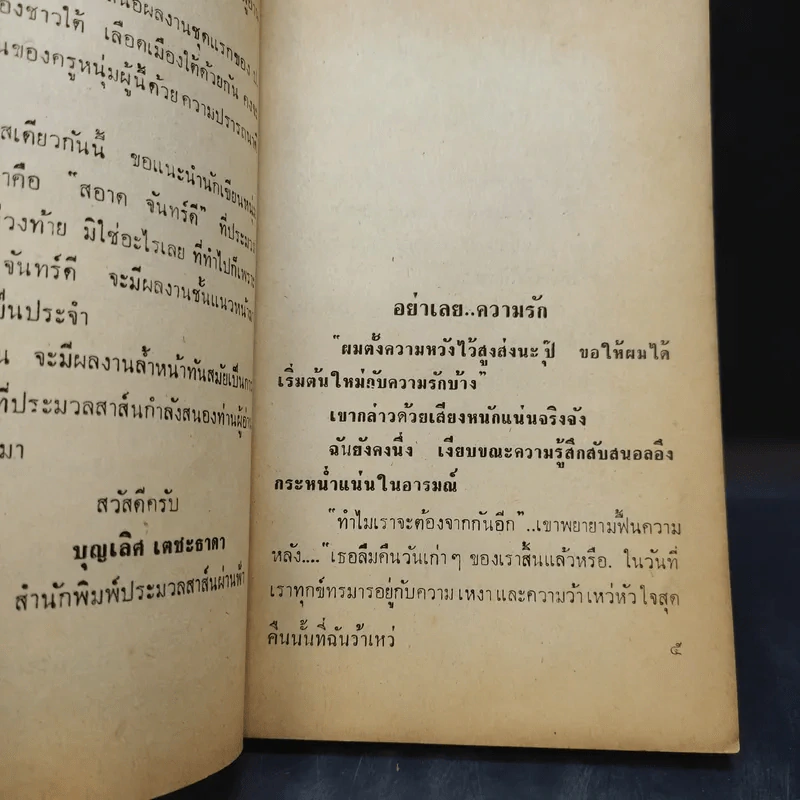 นอผลงานชุดแรกของ
องชาวใต้ เลือดเมืองใต้ด้วยกัน
นของครูหนุ่มผู้นี้ด้วยความปรารถนา
สเดียวกันนี้ ขอแนะนำนักเขียนหนุ่ม
าคือ "สอาด จันทร์ดี" ที่ประมวล
วงท้าย มิใช่อะไรเลย ที่ทำไปก็เพราะ
จันทร์ดี จะมีผลงานชั้นแนวหน้า
ป็นประจำ
น จะมีผลงานล้ำหน้าทันสมัยเป็นการ
ที่ประมวลสาส์นกำลังสนองท่านผู้อ่าน
มา
สวัสดีครับ
บุญเลิศ เตชะธาดา
สำนักพิมพ์ประมวลสาส์นผ่านฟ้า
อย่าเลย..ความรัก
"ผมตั้งความหวังไว้สูงส่งนะ ปุ๊ ขอให้ผมได้
เริ่มต้นใหม่กับความรักบ้าง"
เขากล่าวด้วยเสียงหนักแน่นจริงจัง
ฉันยังคงนิ่ง เงียบขณะความรู้สึกสับสนอลอึง
กระหน่ำแน่นในอารมณ์
"ทำไมเราจะต้องจากกันอีก"..เขาพยายามฟื้นความ
หลัง...."เธอลืมคืนวันเก่า ๆ ของเราสิ้นแล้วหรือ. ในวันที่
เราทุกข์ทรมารอยู่กับความ เหงา และความว้า เหว่หัว ใจสุด
คืนนั้นที่ฉันว้าเหว่
๕